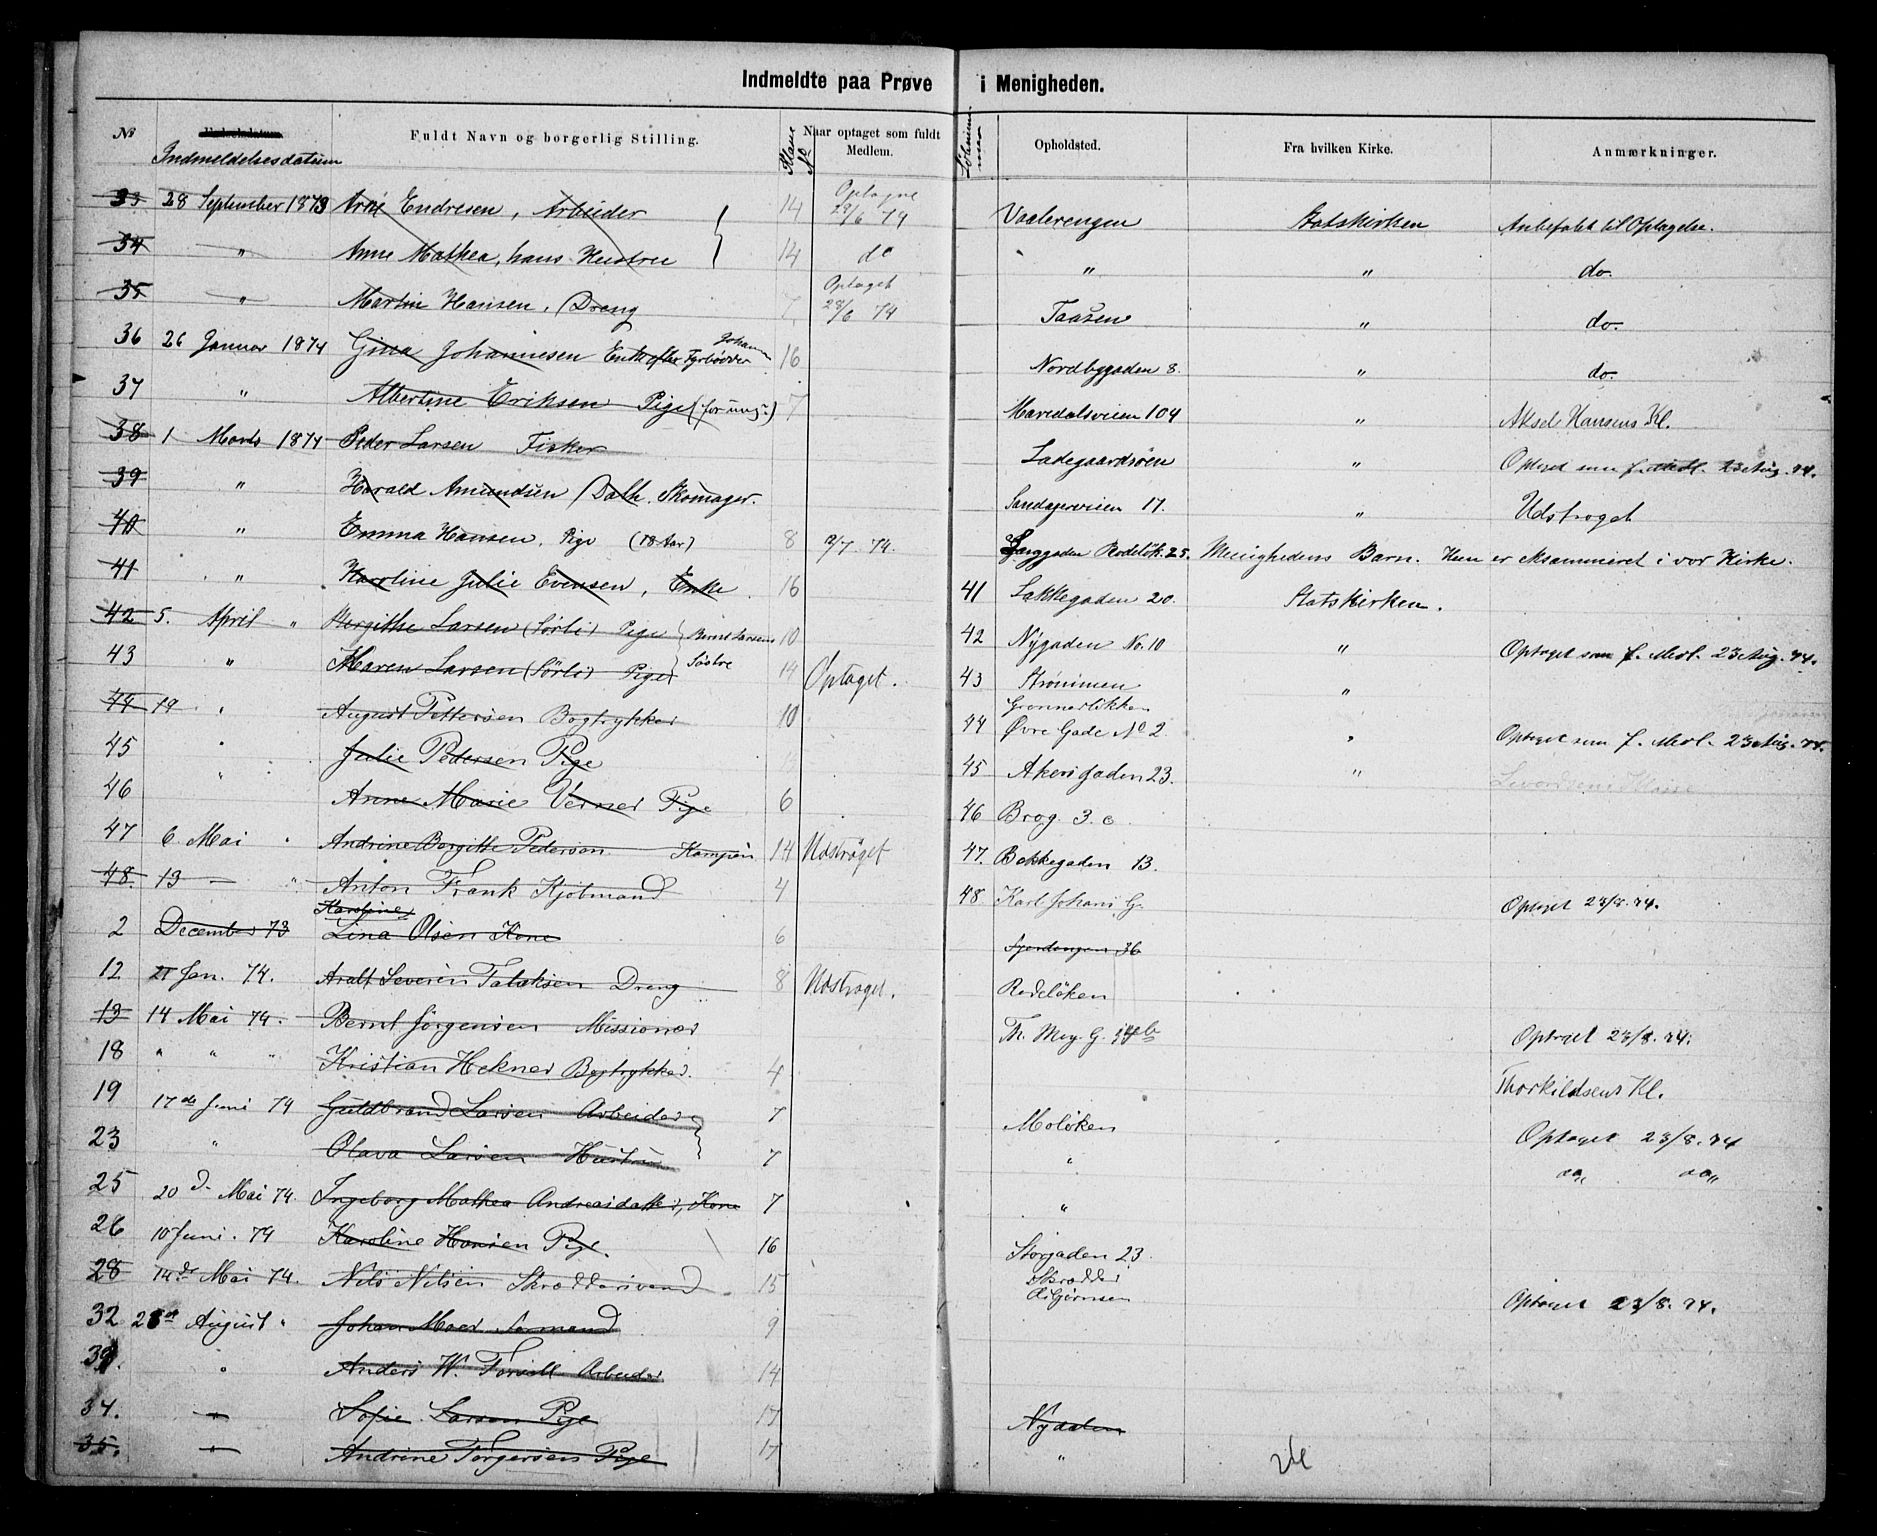 Indmeldte paa Prøve i Menigheden.
No Indmeldelsesdatum Fuldt Navn og borgerlig Stilling. Klasse No Naar optaget som fuldt Medlem. Opholdsted. Fra hvilken Kirke. Anmærkninger.
33. 28 September 1873 Arne Endresen, Arbeider 14 Optagne 28/6 74 Vaalerengen Statskirken Anbefalet til Optagelse.
34 " Anne Mathea, hans Hustru 14 do " " do.
35 " Martin Hansen, Dreng 7. Optaget 28/6 74 Taasen " do.
36 26 Januar 1874 Gina Johannesen Enke efter Fyrbøder Johann 16 Nordbygaden 8. " do.
37 " Albertine Eriksen Pige (for ung) 7 Maredalsveien 104 " Aksel Hansens Kl.
38 1 Marts 1874 Peder Larsen Fisker Ladegaardsøen " Optaget som f. Medl. 23 Aug. 74.
39 " Harald Amundsen Dalh. Skomager. Sandagerveien 17. " Udstroget
40 " Emma Hansen, Pige (18 Aar) 8 2/7. 74. Langgaden Rodeløk. 25. Menighedens Barn. Hun er eksammineret i vor Kirke.
41 " Karoline Julie Evensen, Enke. 16 41 Lakkegaden 20. Statskirken.
42 5. April " Bergithe Larsen (Sørli) Pige Bernt Larsens 10 42 Nygaden No. 10 " Optaget som f. Med. 23 Aug. 74.
43 " Maren Larsen (Sørli) Pige Søstre 14 Optaget. 43 Strømmen "
44 19 " August Pettersen Bogtrykker 10 44 Grønnerløkken Øvre Gade No 2. " Optaget som f. Med. 23 Aug. 74.
45 " Julie Pedersen Pige 45 Akersgaden 23. "
46 " Anne Marie Verner Pige 6 46 Brog. 3. c
47 6. Mai " Andrine Borgitte Pederson Kampen 14 Udstrøget 47. Bakkegaden 13.
48. 13 — " Anton Frank Kjøbmand 4 48 Karl Johans G. Optaget 23/8. 74.
2 December 73 Karoline Lina Olsen Kone 6 36
12 21 Jan. 74. Aralt Severin Talaksen Dreng 8 Udstroget. Rodeløken
13 14 Mai 74. Bernt Jørgensen Missionær Th. Mey. G. 14b Optaget 23/8. 74.
18 " " " Kristian Hekner Bogtrykker. 4 Thorkildsens Kl.
19 17de Juni 74 Guldbrand Larsen Arbeider 7 Moløken Optaget 23/8. 74
23 " Olava Larsen Hustru 7 " do, do,,
25 20 d. Mai 74. Ingeborg Mathea Andreasdatter, Kone 7 "
26 10 Juni. 74 Karoline Hansen Pige. 16 Storgaden 23.
28 14de Mai 74. Nils Nilsen Skræddersvend 15 Skrædder Optaget 23/8. 74.
32 28de August " Johan Moer 9
" Anders W. Arbeider 14
34. " Sofie Larsen Pige 17 Nydalen
35. " Andrine Torgersen Pige 17 "